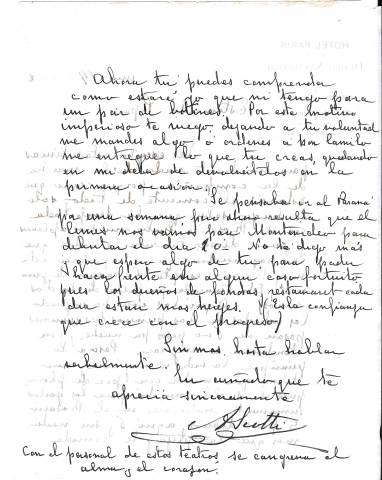 Ahora tu puedes comprender
como estaré yo que ni tengo para
un par de botines. Por este motivo
imperioso te ruego, dejando a tu voluntad
me mandes algo ó ordenes a por Camilo
me entregue lo que tu creas, quedando
en mi deber de devolvértelos en la
primera ocasión.
Se pensaba ir al Paraná
por una semana pero ahora resulta que el
lunes nos vamos para Montevideo para
debutar el dia 10. No te digo mas
y que espero algo de tu, para poder
hacer frente en algun caso fortuito
pues los dueños de fondas, restaurant cada
dia estan mas herejes. (Es la confianza
que crece con el progreso)
Sin mas, hasta hablar
verbalmente.
Tu cuñado que te
aprecia sinceramente
Con el personal de estos teatros se cangrena el
alma y el corazón.